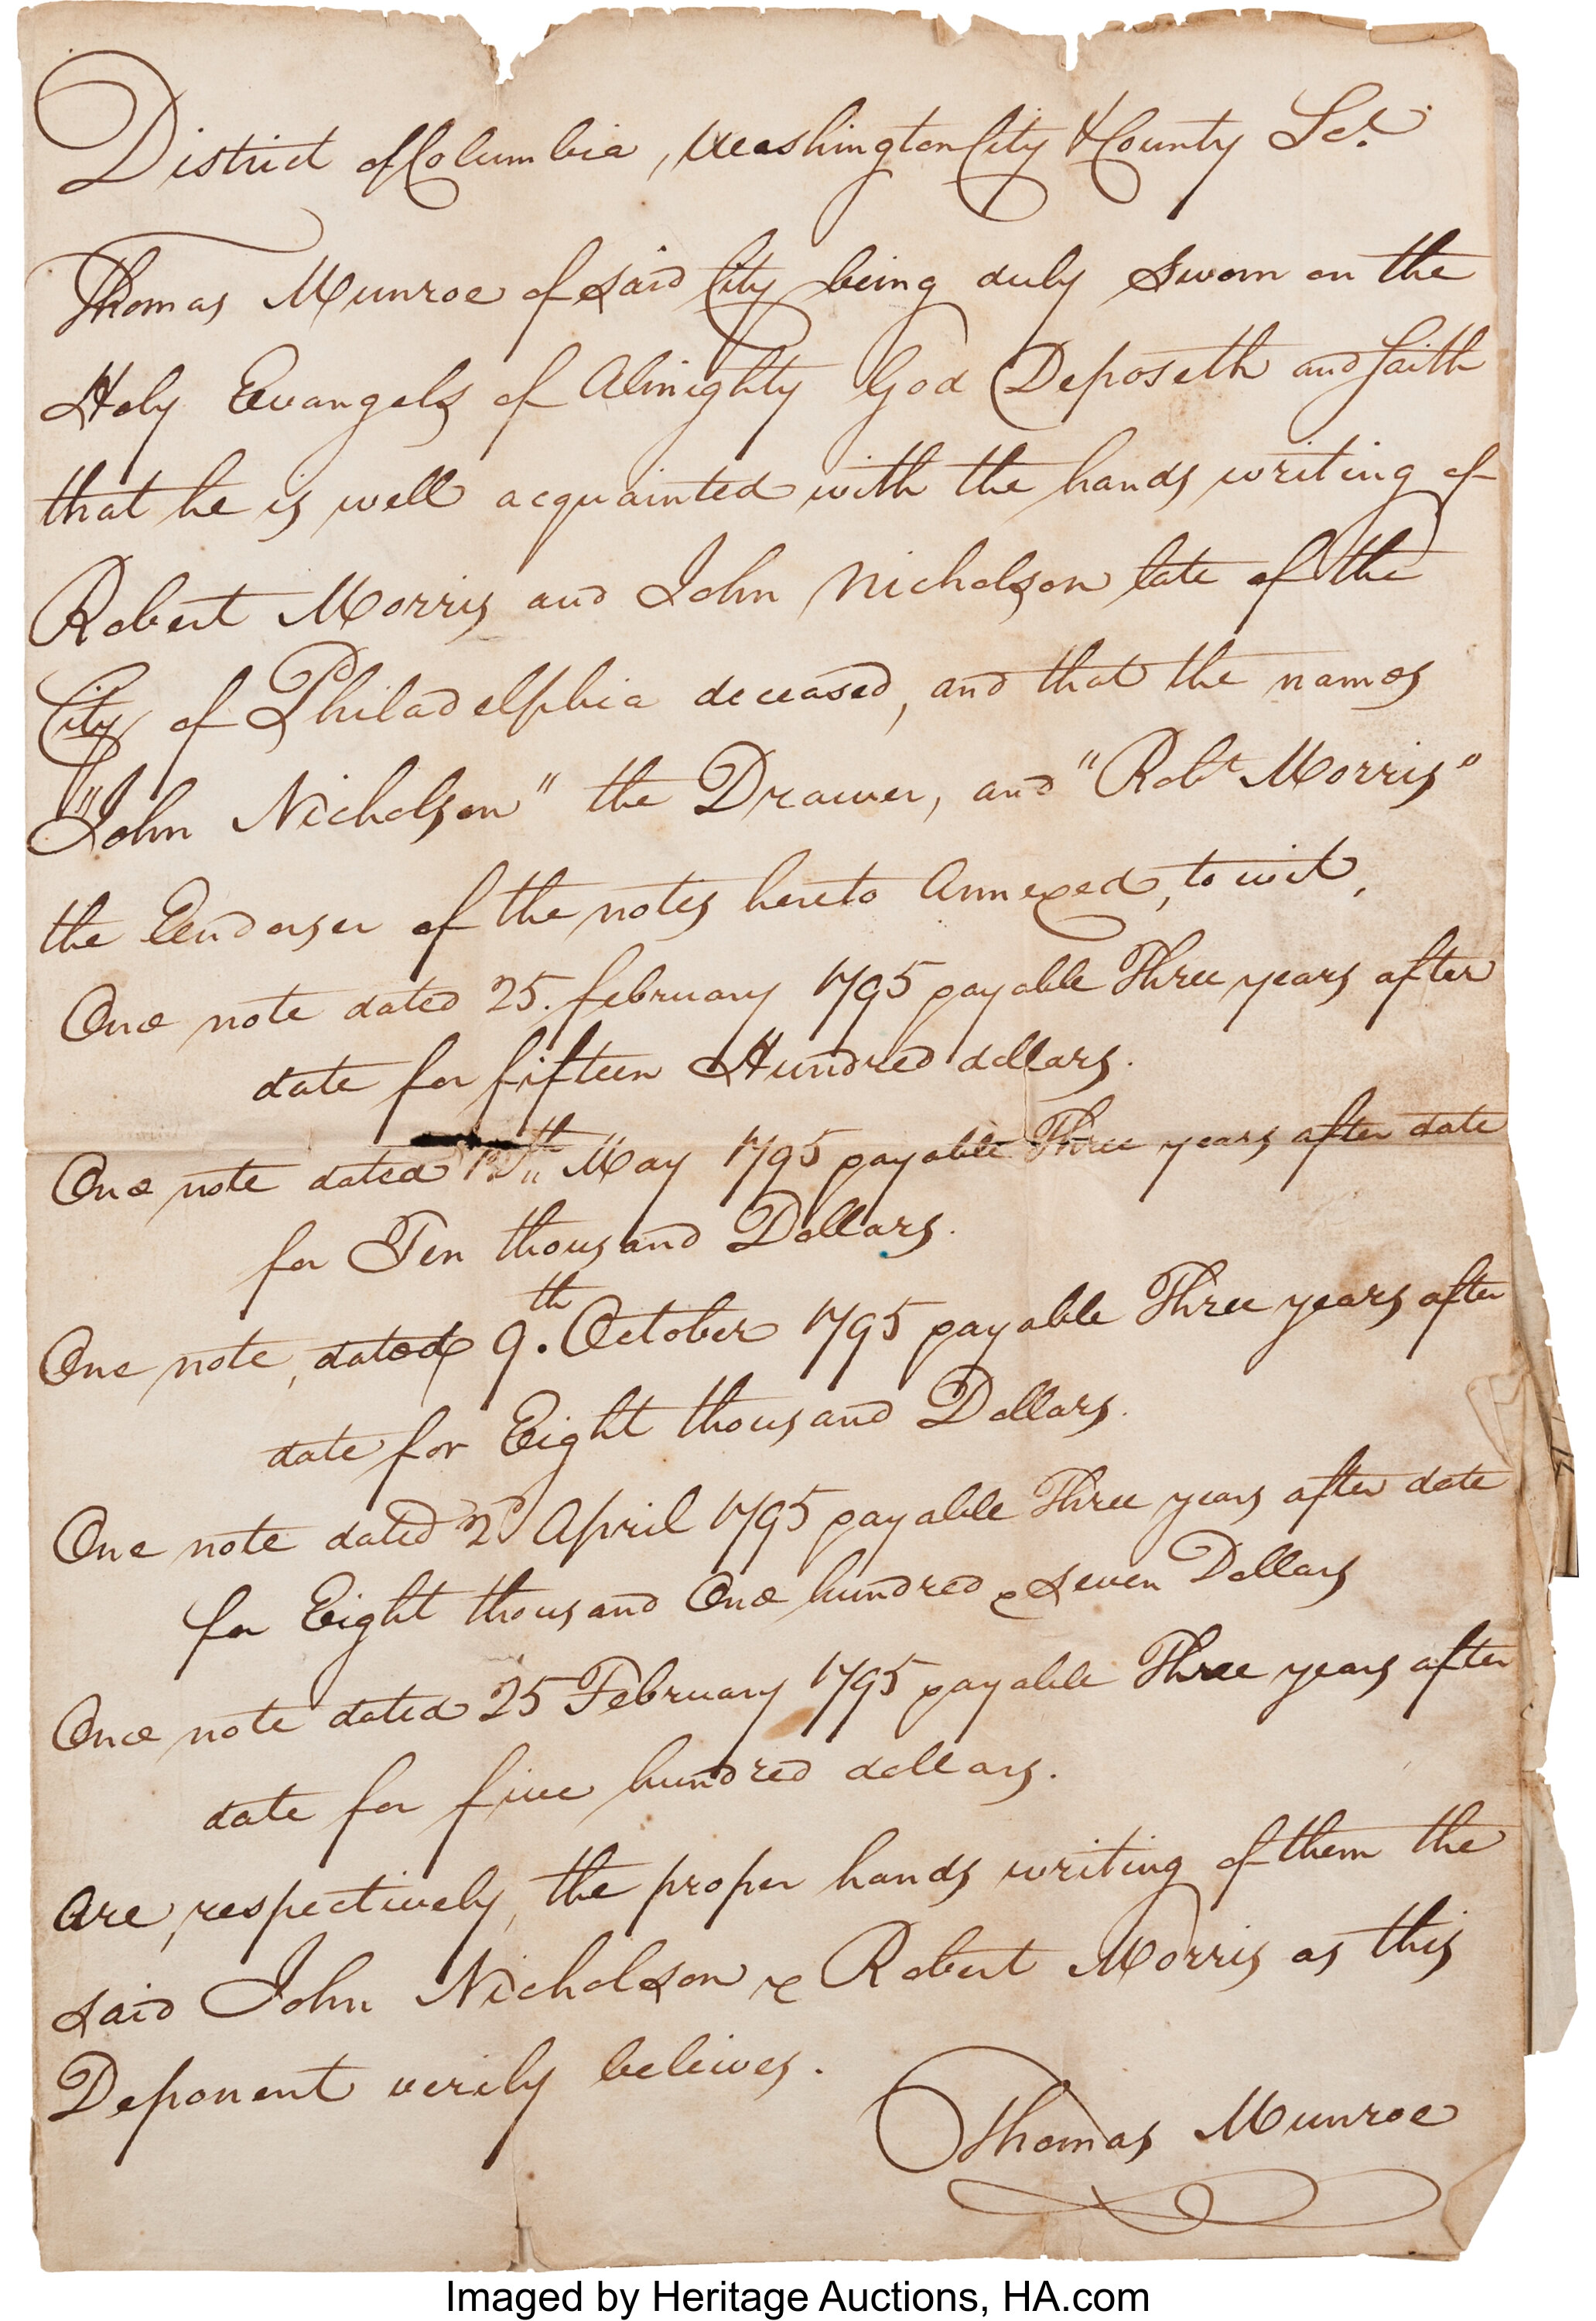 District of Columbia, Washington City & County Sct.
Thomas Munroe of said City being duly sworn on the
Holy Evangels of Almighty God Deposeth and saith
that he is well acquainted with the hands writing of
Robert Morris and John Nicholson late of the
City of Philadelphia deceased, and that the names
"John Nicholson" the Drawer, and "Robt Morris"
the Endorser of the notes hereto Annexed, to wit,
One note dated 25. february 1795 payable Three years after
date for fifteen Hundred dollars.
One note dated 12th May 1795 payable Three years after date
for Ten thousand Dollars.
One note, dated 9th. October 1795 payable Three years after
date for Eight thousand Dollars.
One note dated 2d April 1795 payable Three years after date
for Eight thousand One hundred & seven Dollars
One note dated 25 February 1795 payable Three years after
date for five hundred dollars.
Are, respectively, the proper hands writing of them the
said John Nicholson & Robert Morris as this
Deponent verily beleives.
Thomas Munroe
Imaged by Heritage Auctions, HA.com